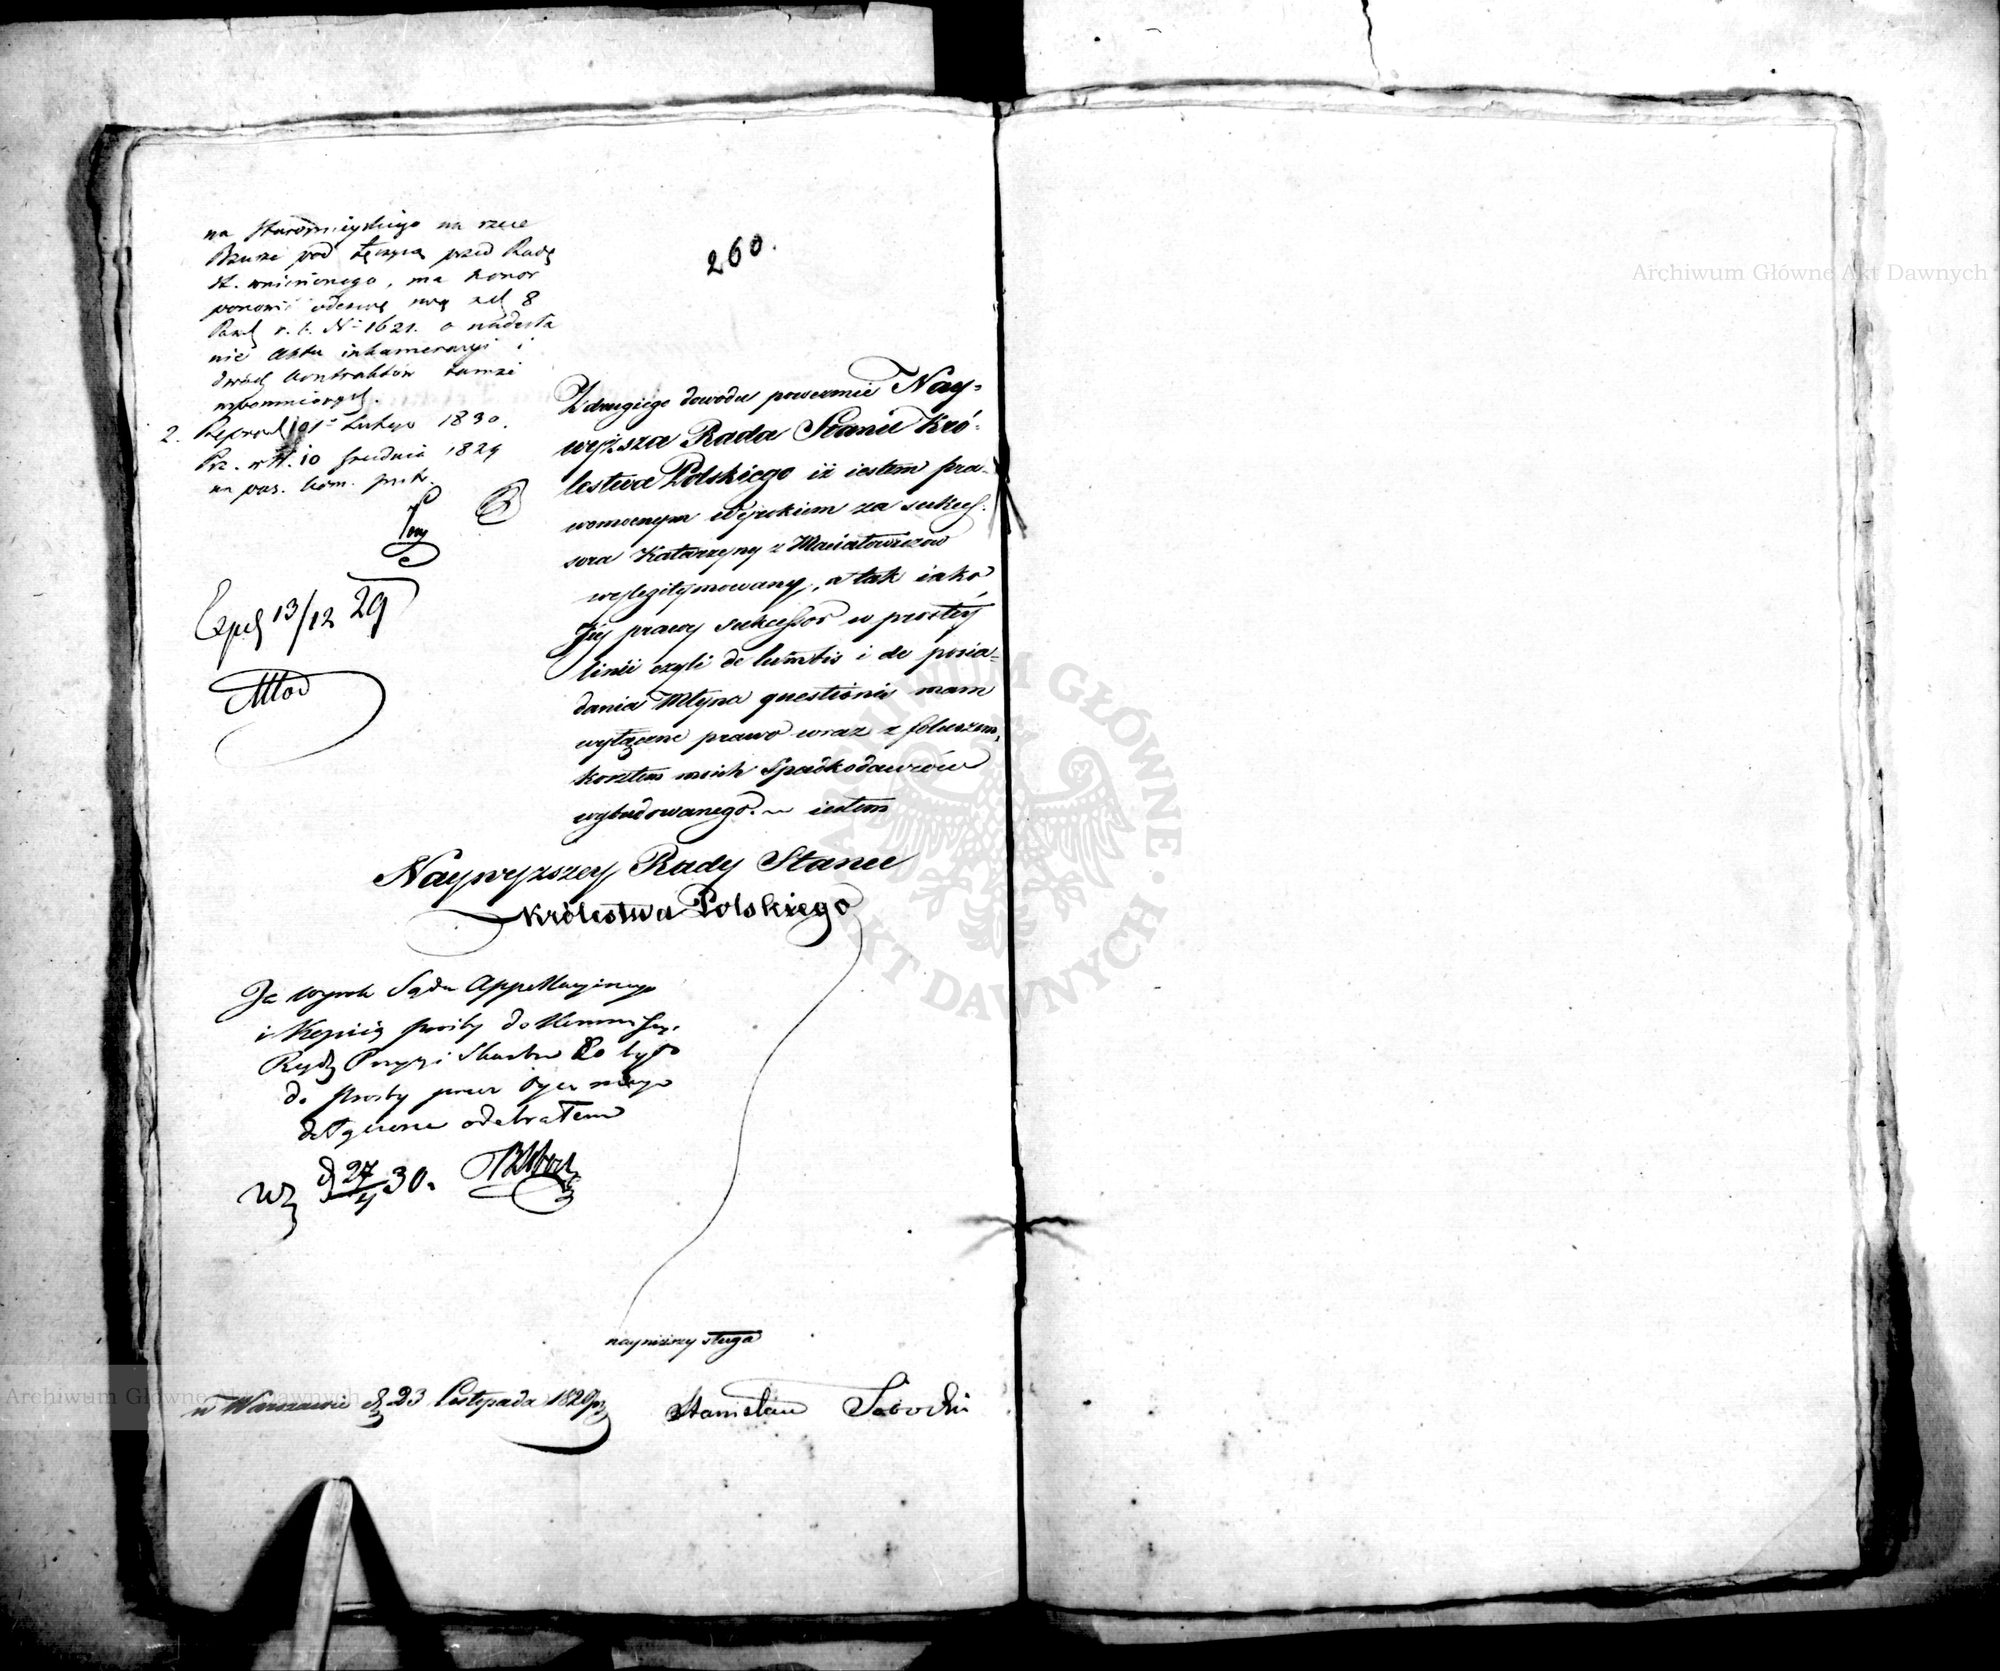 260.
na Staromieyskiego na rzece
Bzurze pod Łęczycą przed Radę
St. wniesionego, ma honor
ponowić odezwę swą z d. 8
r. b. N. 1621. o nadesła
nie Aktu inkameracyi i
dwóch kontraktów tamże
wspomnionych.
2. Lutego 1830.
10 Grudnia 1829
Exped 13/12 29
Z drugiego dowodu poweźmie Nay-
wyższa Rada Stanu Kró-
lestwa Polskiego iż iestem pra-
womocnym Wyrokiem za sukces-
sora Katarzyny z Maciatowiczow
wylegitymowany, a tak iako
Jéy prawy sukcessor w prostéy
linii czyli de lumbis i do posia-
dania Młyna questionis mam
wyłączne prawo wraz z foluszem,
kosztem moich Spadkodawców
wybudowanego. ~ iestem
Naywyższey Rady Stanu
Królestwa Polskiego
Ja wyrok Sądu Appellacyinego
i Kopiią prośby do Kommissyi
Rządz Przych i Skarbu
do prośby przez Oyca mego
dołączone odebrałem
W d 27/4 30.
nayniższy sługa
w Warszawie d 23 Listopada 1829
Stanisław
Archiwum Główne Akt Dawnych
Archiwum Główne Akt Dawnych
ARCHIWUM GŁÓWNE · AKT DAWNYCH ·